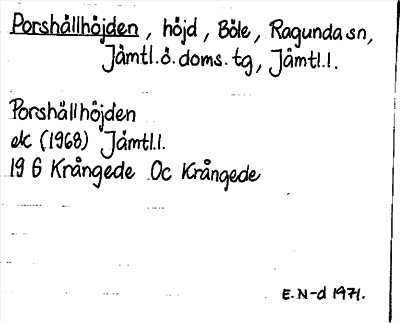 Porshällhöjden, höjd, Böle, Ragunda sn,
Jämtl. ö. doms. tg, Jämtl. l.
Porshällhöjden
ek (1968) Jämtl. l.
19 G Krångede 0c Krångede
E. N-d 1971.